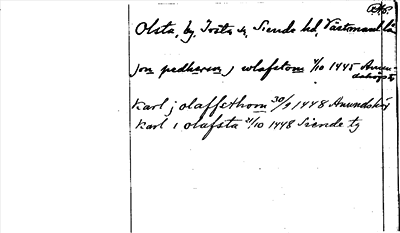 Olsta, by, Irsta sn, Siende hd, Västmanl. län
jon pedherson j wlafstom 7/10 1445 Anun-
dshögs tg
Karl j olaffsthom 30/9 1448 Anundshög
Karl i olafsta 21/10 1448 Siende tg